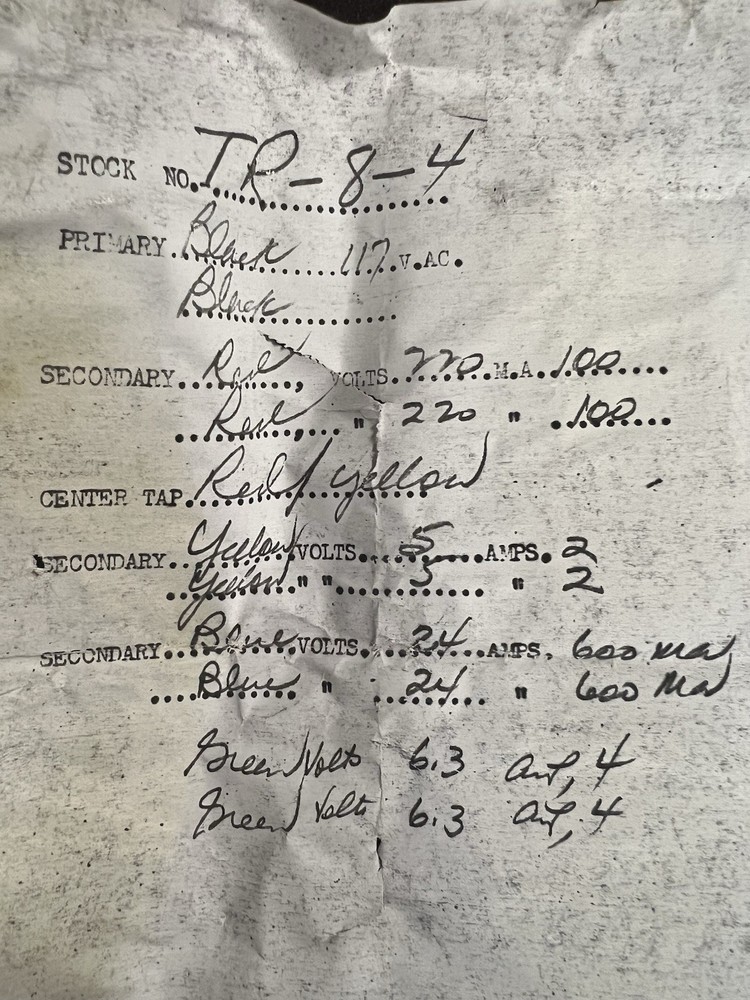 STOCK NO. TR-8-4
PRIMARY..Black......117..V.AC.
Black..........
SECONDARY..Red..., VOLTS.220..M.A.100....
...Red,...." 220 " .100...
CENTER TAP.Red/yellow
SECONDARY..Yellow VOLTS....5....AMPS.2
..Yellow " "..........5.... " 2
SECONDARY..Blue VOLTS...24...AMPS. 600 ma
....Blue.. " ...24... " 600 Ma
Green Volts 6.3 4
Green Volts 6.3 4